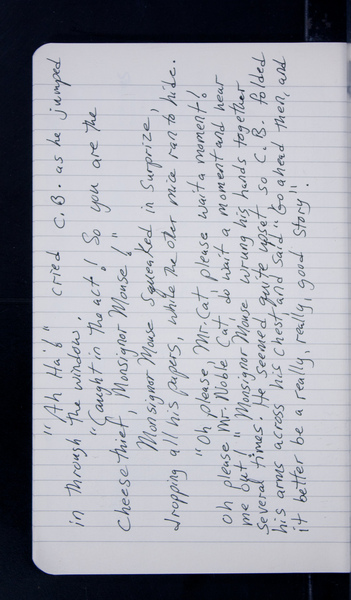 "Ah Ha!" cried C.B. as he jumped
in through the window.
"Caught in the act! So you are the
Cheese thief, Monsignor Mouse!"
Monsignor Mouse Squeaked in Surprize,
dropping all his papers, while the other mice ran to hide.
"Oh please Mr. Cat please wait a moment!
Oh please Mr. Noble Cat, do wait a moment and hear
me out!" Monsignor Mouse wrung his hands together
Several times. He seemed quite upset so C.B. folded
his arms across his chest and said "Go ahead then, and
it better be a really, really, good Story".